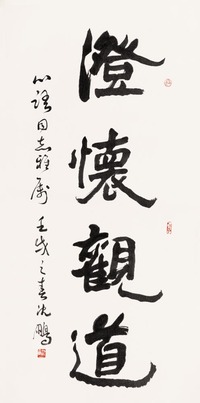 澄懷觀道
心語同志雅属 壬戌之春沈鵬